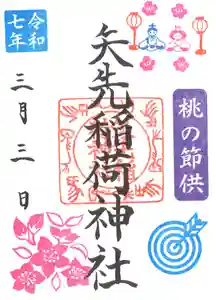 令和
七年
三月三日
矢先稲荷神社
桃の節供